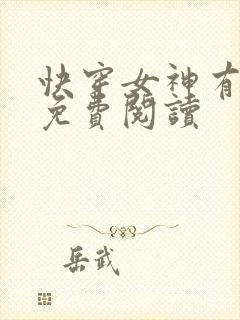 快穿女神有
免費閱讀
岳武